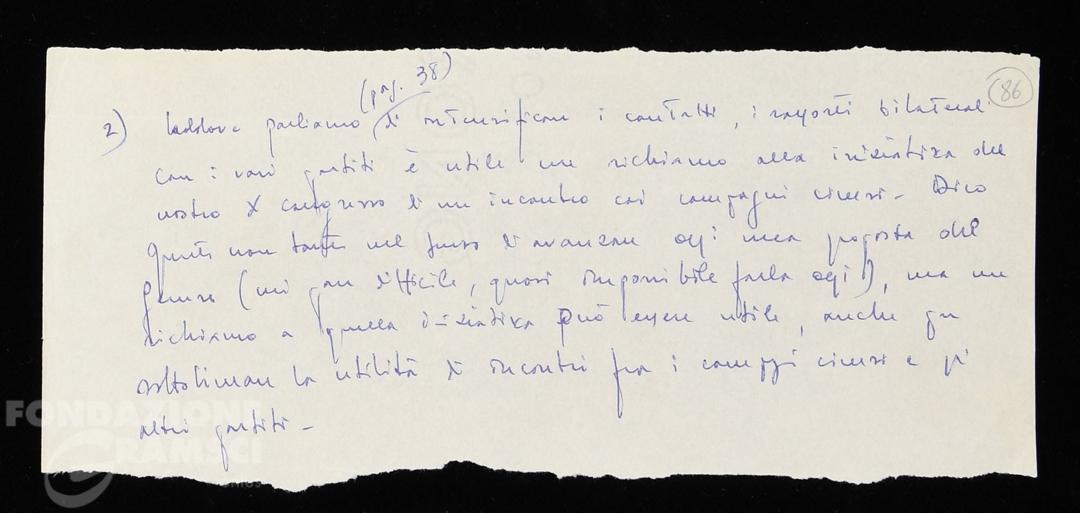 (pag. 38)
86
2) laddove parliamo di intensificare i contatti, i rapporti bilaterali
con i vari partiti è utile un richiamo alla iniziativa del
nostro X congresso di un incontro coi compagni cinesi - Dico
questo non tanto nel senso di avanzare oggi una proposta del
genere (mi pare difficile, quasi impossibile farla oggi), ma un
richiamo a quella iniziativa può essere utile, anche per
sottolineare la utilità di incontri fra i compagni cinesi e gli
altri partiti -
FONDAZIONE
GRAMSCI